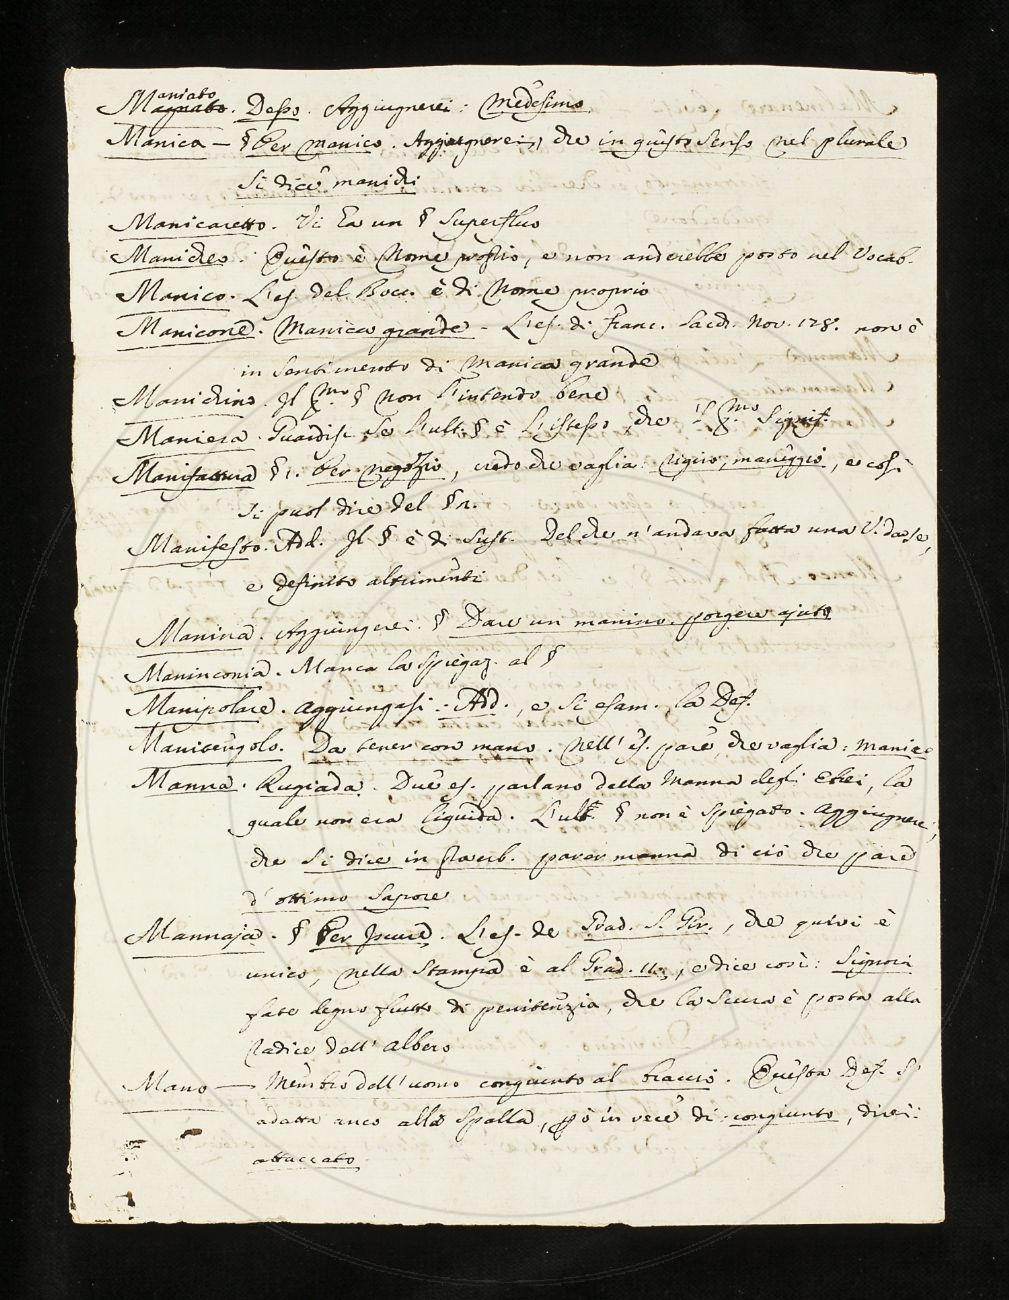 Maniato. Desso. Aggiugnerei: medesimo
Manica — § Per manico. Aggiugnerei, che in questo senso nel plurale
si dice manichi
Manicaretto. Vi ha un § superfluo
Manicheo. Questo è Nome proprio, e non anderebbe posto nel Vocab.
Manico. L'es. del Bocc. è di Nome proprio
Manicone. Manica grande - L'es. di Franc. Sacch. Nov. 178. non è
in sentimento di Manica grande
Manichino. Il pmo. § non l'intendo bene
Maniera. Guardisi se l'ult. § è l'istesso, che il pmo. signif.
Manifattura § 1. Per negozio, credo che vaglia: rigiro, maneggio, e così
si puol dire del § 2.
Manifesto. Add. Il § è di Sust. Del che n'andava fatta una V. da se,
e definito altrimenti
Manina. Aggiungerei: § Dare un manino. porgere ajuto
Maninconia. Manca la spiegaz. al §
Manipolare. Aggiungasi: Add., e si esam. la Def.
Manitengolo. Da tener con mano. Nell'es. pare, che vaglia: manico
Manna. Rugiada. Due es. parlano della Manna degli Ebrei, la
quale non era liquida. L'ult. § non è spiegato. Aggiugnerei,
che si dice in proverb. parer manna di ciò che pare
d'ottimo sapore
Mannaja. § Per scure. L'es. de Grad. S. Gir., che quivi è
unico, nella Stampa è al Grad. 11., e dice così: Signori
fate degno frutto di penitenzia, che la scura è posta alla
radice dell'albero
Mano — Membro dell'uomo congiunto al braccio. Questa Def. si
adatta anco alla spalla, pò in vece di: congiunto, direi:
attaccato